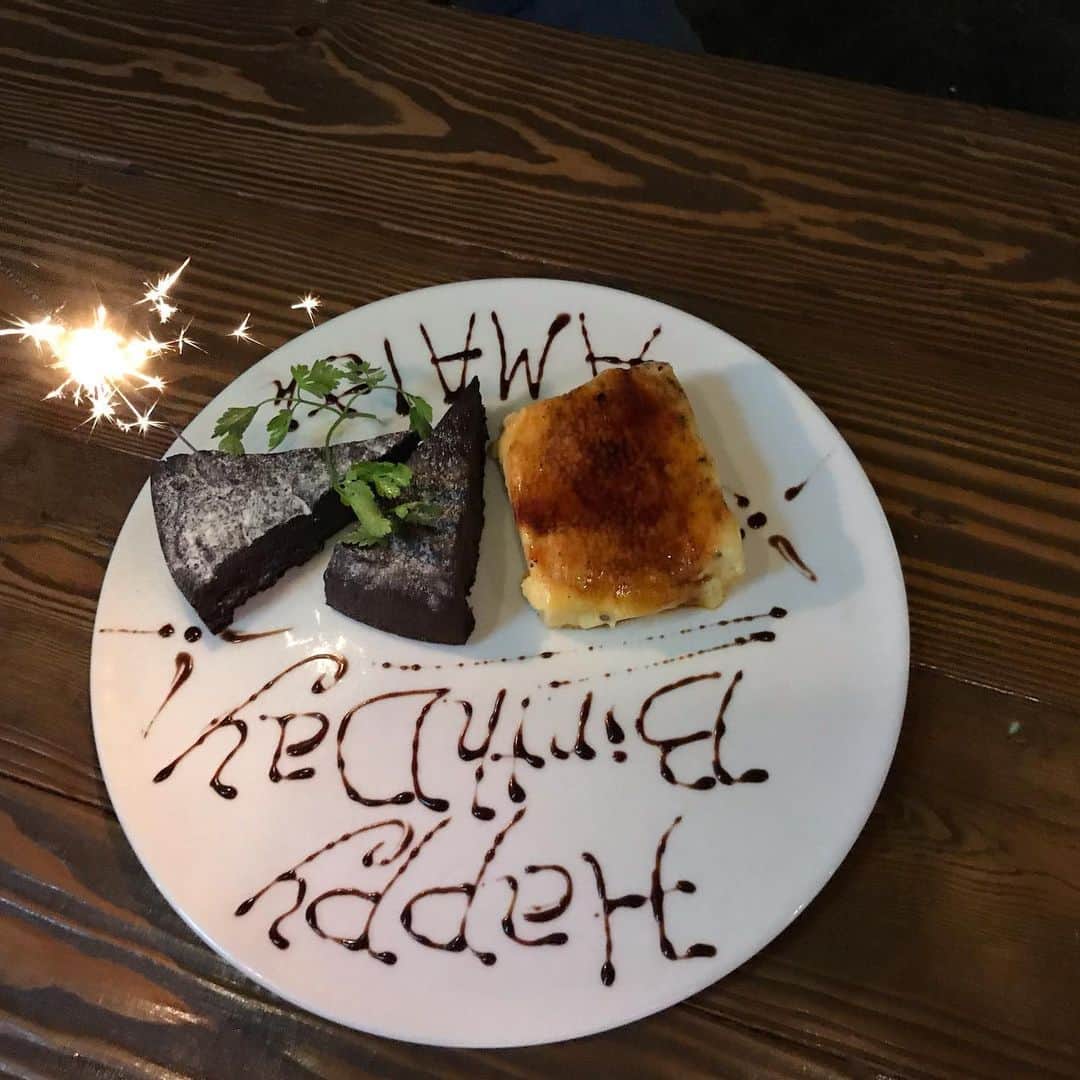 Happy
BirthDay!